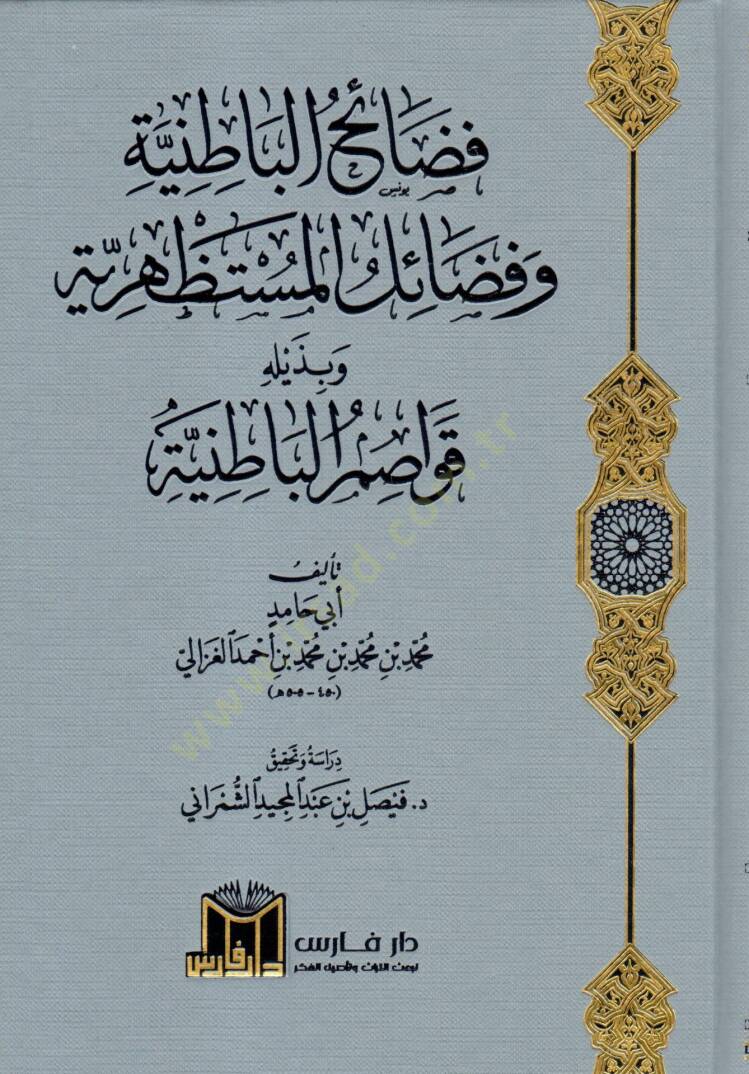 فَضَائِحُ الْبَاطِنِيَّةِ
يونس
وَفَضَائِلُ الْمُسْتَظْهِرِيَّةِ
وَبِذَيْلِهِ
قَوَاصِمُ الْبَاطِنِيَّةِ
تأليف
أبي حَامِدٍ
مُحَمَّدِ بْنِ مُحَمَّدِ بْنِ مُحَمَّدِ بْنِ أَحْمَدَ الْغَزَالِيّ
(٤٥٠ - ٥٠٥ هـ)
دِرَاسَةُ وَتَحْقِيقُ
د. فَيْصَلِ بْنِ عَبْدِ الْمَجِيدِ الشَّمْرَانِي
دار فارس
دار فارس
لبعث التراث وتأصيل الفكر